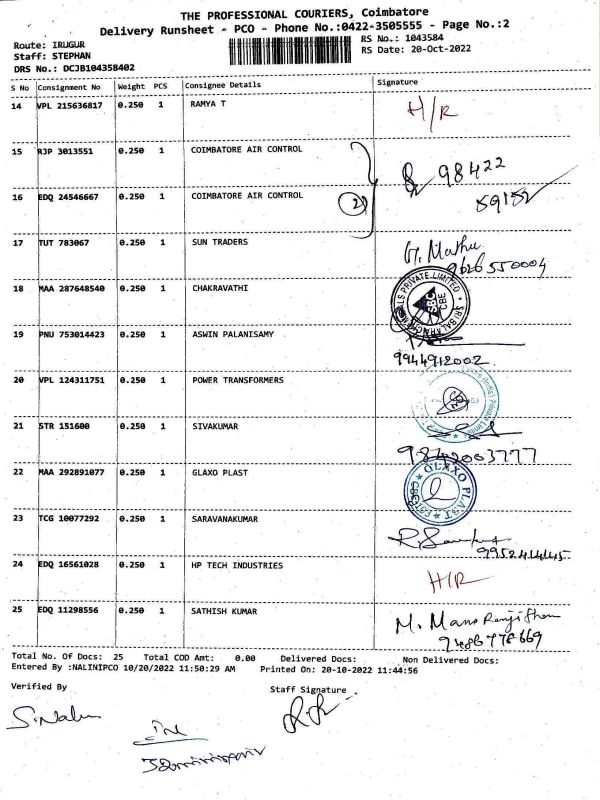 THE PROFESSIONAL COURIERS, Coimbatore
Delivery Runsheet - PCO - Phone No.:0422-3505555 - Page No.:2
Route: IRUGUR
RS No.: 1043584
Staff: STEPHAN
RS Date: 20-Oct-2022
DRS No.: DCJB104358402
S No Consignment No Weight PCS Consignee Details Signature
14 VPL 215636817 0.250 1 RAMYA T H/R
15 RJP 3013551 0.250 1 COIMBATORE AIR CONTROL 98422
16 EDQ 24546667 0.250 1 COIMBATORE AIR CONTROL 2 59152
17 TUT 783067 0.250 1 SUN TRADERS G. Mathu
9626550004
18 MAA 287648540 0.250 1 CHAKRAVATHI
19 PNU 753014423 0.250 1 ASWIN PALANISAMY
9944912002
20 VPL 124311751 0.250 1 POWER TRANSFORMERS
21 STR 151600 0.250 1 SIVAKUMAR
9842003777
22 MAA 292891077 0.250 1 GLAXO PLAST GLAXO PLAST
23 TCG 10077292 0.250 1 SARAVANAKUMAR
24 EDQ 16561028 0.250 1 HP TECH INDUSTRIES H/R
25 EDQ 11298556 0.250 1 SATHISH KUMAR M. Mano Ranjitham
Total No. Of Docs: 25 Total COD Amt: 0.00 Delivered Docs: Non Delivered Docs:
Entered By :NALINIPCO 10/20/2022 11:50:29 AM Printed On: 20-10-2022 11:44:56
Verified By
Staff Signature
S.Nalini